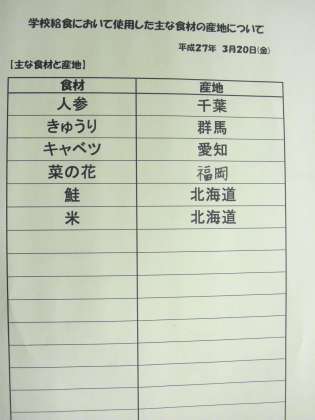 学校給食において使用した主な食材の産地について
平成27年 3月20日(金)
【主な食材と産地】
食材 産地
人参 千葉
きゅうり 群馬
キャベツ 愛知
菜の花 福岡
鮭 北海道
米 北海道